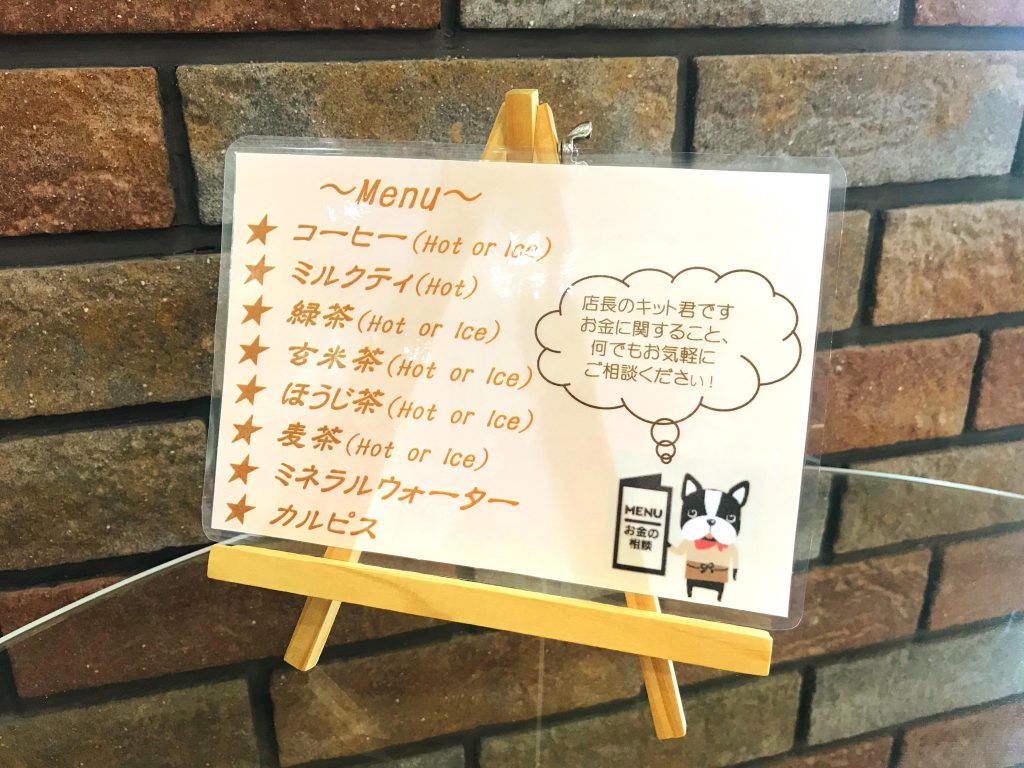 ～Menu～
★ コーヒー(Hot or Ice)
★ ミルクティ(Hot)
★ 緑茶(Hot or Ice)
★ 玄米茶(Hot or Ice)
★ ほうじ茶(Hot or Ice)
★ 麦茶(Hot or Ice)
★ ミネラルウォーター
★ カルピス
店長のキット君です
お金に関すること、
何でもお気軽に
ご相談ください！
MENU
お金の
相談